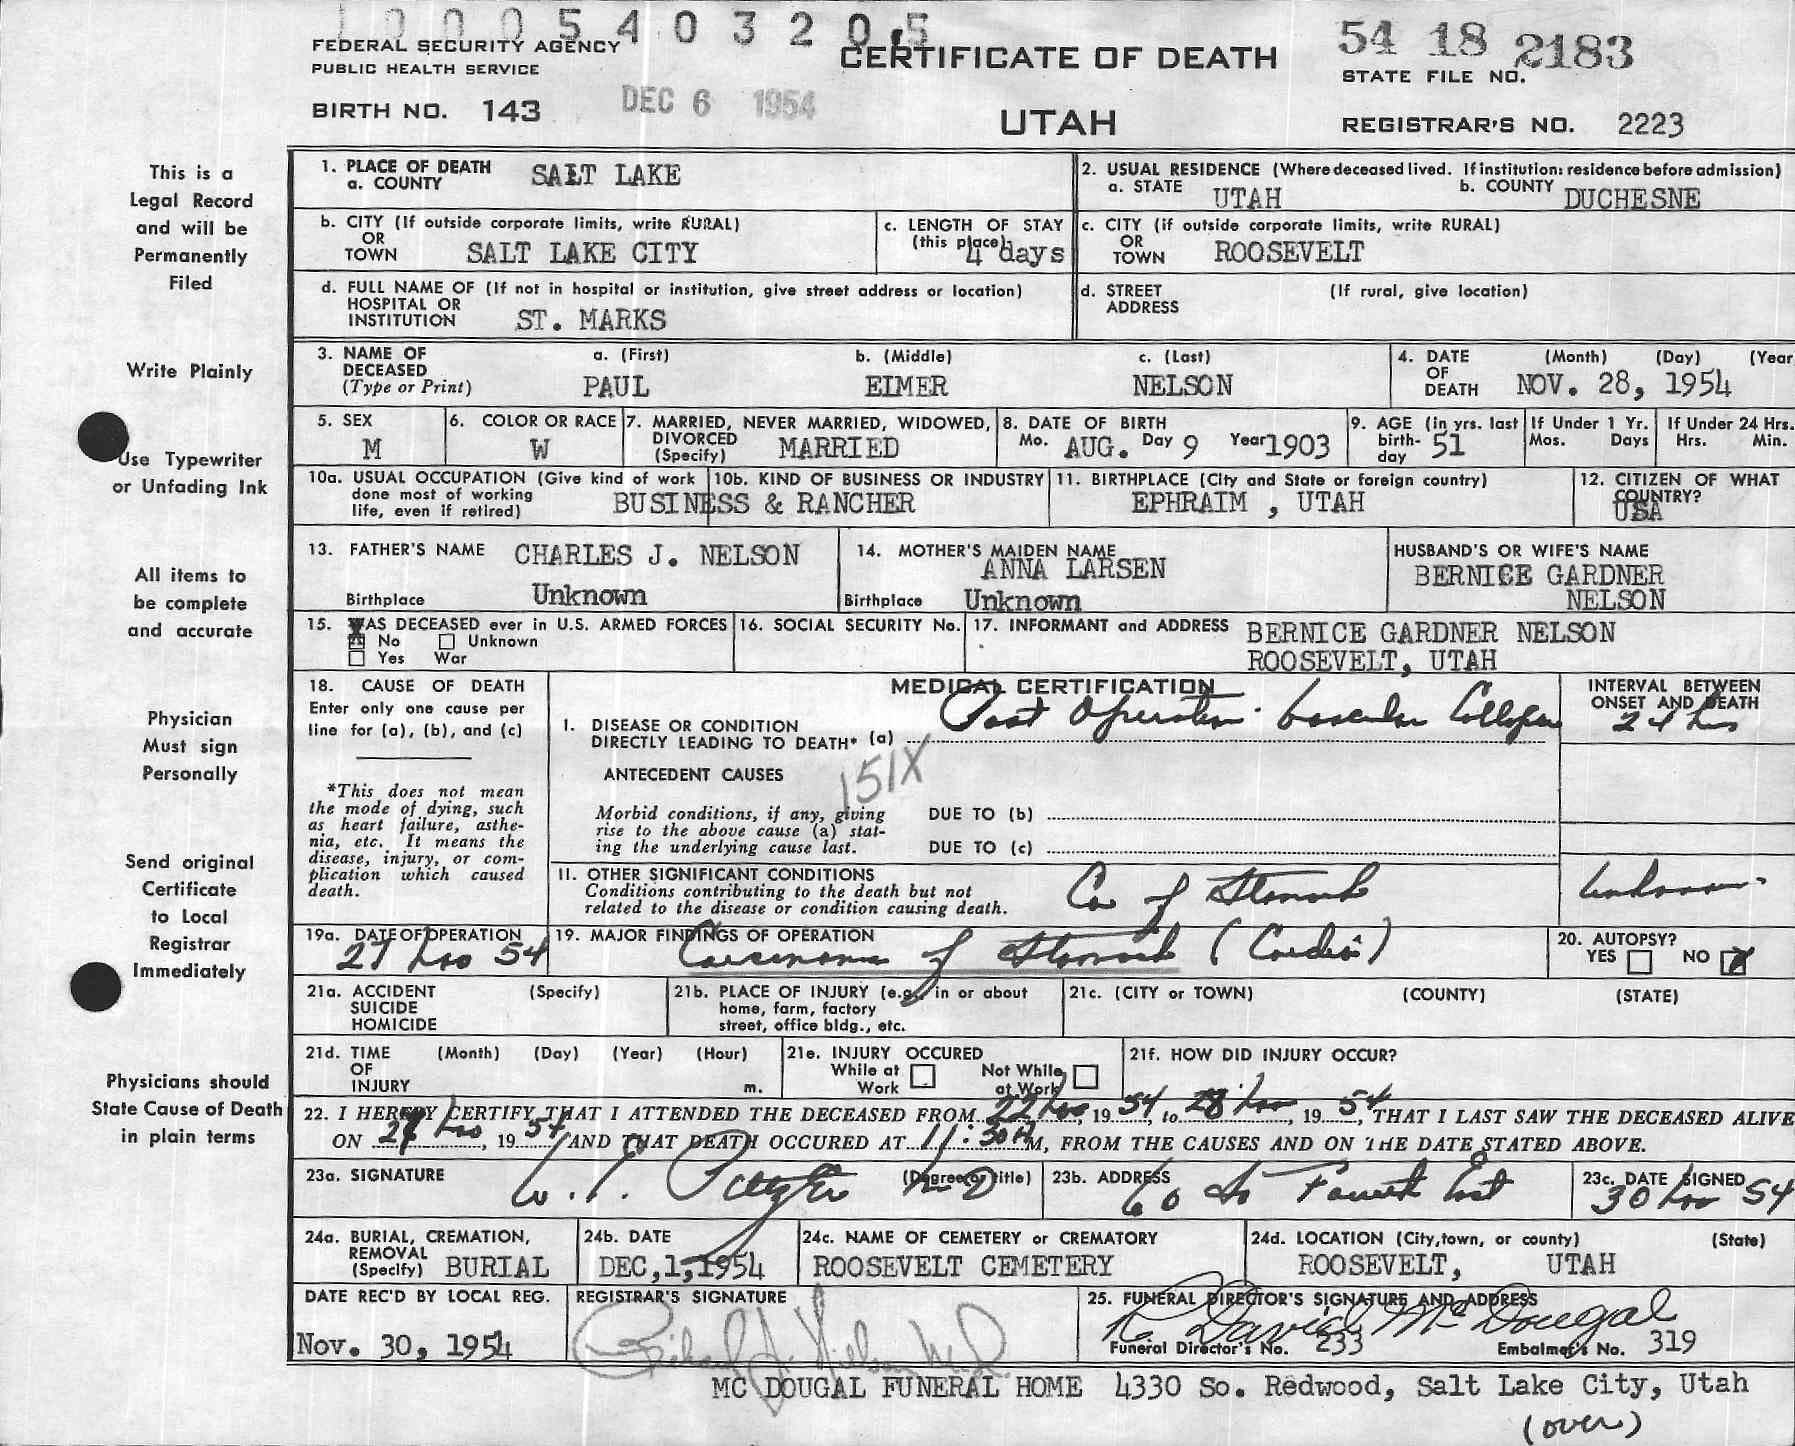 1000540320.5
FEDERAL SECURITY AGENCY
PUBLIC HEALTH SERVICE
CERTIFICATE OF DEATH
54 18 2183
STATE FILE NO.
BIRTH NO. 143
DEC 6 1954
UTAH
REGISTRAR'S NO. 2223
This is a
Legal Record
and will be
Permanently
Filed
Write Plainly
Use Typewriter
or Unfading Ink
All items to
be complete
and accurate
Physician
Must sign
Personally
Send original
Certificate
to Local
Registrar
Immediately
Physicians should
State Cause of Death
in plain terms
1. PLACE OF DEATH
a. COUNTY SALT LAKE
2. USUAL RESIDENCE (Where deceased lived. If institution: residence before admission)
a. STATE UTAH b. COUNTY DUCHESNE
b. CITY (If outside corporate limits, write RURAL)
OR
TOWN SALT LAKE CITY
c. LENGTH OF STAY
(this place) 4 days
c. CITY (if outside corporate limits, write RURAL)
OR
TOWN ROOSEVELT
d. FULL NAME OF (If not in hospital or institution, give street address or location)
HOSPITAL OR
INSTITUTION ST. MARKS
d. STREET (If rural, give location)
ADDRESS
3. NAME OF DECEASED (Type or Print)
a. (First) b. (Middle) c. (Last)
PAUL EIMER NELSON
4. DATE OF DEATH (Month) (Day) (Year
NOV. 28, 1954
5. SEX
M
6. COLOR OR RACE
W
7. MARRIED, NEVER MARRIED, WIDOWED,
DIVORCED
(Specify) MARRIED
8. DATE OF BIRTH
Mo. AUG. Day 9 Year 1903
9. AGE (in yrs. last
birth-
day 51
If Under 1 Yr.
Mos. Days
If Under 24 Hrs.
Hrs. Min.
10a. USUAL OCCUPATION (Give kind of work
done most of working
life, even if retired)
10b. KIND OF BUSINESS OR INDUSTRY
BUSINESS & RANCHER
11. BIRTHPLACE (City and State or foreign country)
EPHRAIM , UTAH
12. CITIZEN OF WHAT
COUNTRY?
USA
13. FATHER'S NAME CHARLES J. NELSON
Birthplace Unknown
14. MOTHER'S MAIDEN NAME
ANNA LARSEN
Birthplace Unknown
HUSBAND'S OR WIFE'S NAME
BERNICE GARDNER
NELSON
15. WAS DECEASED ever in U.S. ARMED FORCES
X No Unknown
Yes War
16. SOCIAL SECURITY No.
17. INFORMANT and ADDRESS BERNICE GARDNER NELSON
ROOSEVELT, UTAH
18. CAUSE OF DEATH
Enter only one cause per
line for (a), (b), and (c)
*This does not mean
the mode of dying, such
as heart failure, asthe-
nia, etc. It means the
disease, injury, or com-
plication which caused
death.
MEDICAL CERTIFICATION
I. DISEASE OR CONDITION
DIRECTLY LEADING TO DEATH* (a) Post Operation Vascular Collapse
INTERVAL BETWEEN
ONSET AND DEATH
24 hrs
151X
ANTECEDENT CAUSES
Morbid conditions, if any, giving
rise to the above cause (a) stat-
ing the underlying cause last.
DUE TO (b)
DUE TO (c)
II. OTHER SIGNIFICANT CONDITIONS
Conditions contributing to the death but not
related to the disease or condition causing death.
Ca of Stomach
unknown
19a. DATE OF OPERATION
27 Nov 54
19. MAJOR FINDINGS OF OPERATION
Carcinoma of Stomach (Cardia)
20. AUTOPSY?
YES NO X
21a. ACCIDENT (Specify)
SUICIDE
HOMICIDE
21b. PLACE OF INJURY (e.g., in or about
home, farm, factory
street, office bldg., etc.
21c. (CITY or TOWN) (COUNTY) (STATE)
21d. TIME (Month) (Day) (Year) (Hour)
OF
INJURY m.
21e. INJURY OCCURED
While at Work
Not While at Work
21f. HOW DID INJURY OCCUR?
22. I HEREBY CERTIFY THAT I ATTENDED THE DECEASED FROM 22 Nov, 19 54 to 28 Nov, 19 54, THAT I LAST SAW THE DECEASED ALIVE
ON 27 Nov, 19 54 AND THAT DEATH OCCURED AT 11:30 AM, FROM THE CAUSES AND ON THE DATE STATED ABOVE.
23a. SIGNATURE (Degree or title) M D
23b. ADDRESS
60 So Fourth East
23c. DATE SIGNED
30 Nov 54
24a. BURIAL, CREMATION,
REMOVAL
(Specify) BURIAL
24b. DATE
DEC,1,1954
24c. NAME OF CEMETERY or CREMATORY
ROOSEVELT CEMETERY
24d. LOCATION (City, town, or county) (State)
ROOSEVELT, UTAH
DATE REC'D BY LOCAL REG.
Nov. 30, 1954
REGISTRAR'S SIGNATURE
Richard J. Nelson M.D.
25. FUNERAL DIRECTOR'S SIGNATURE AND ADDRESS
R. David McDougal
Funeral Director's No. 233 Embalmer's No. 319
MC DOUGAL FUNERAL HOME 4330 So. Redwood, Salt Lake City, Utah
(over)